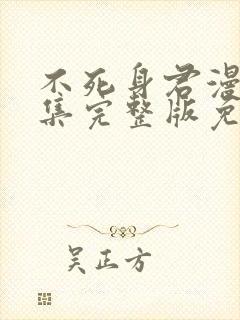 不死身君漫
集完整版免
吴正方